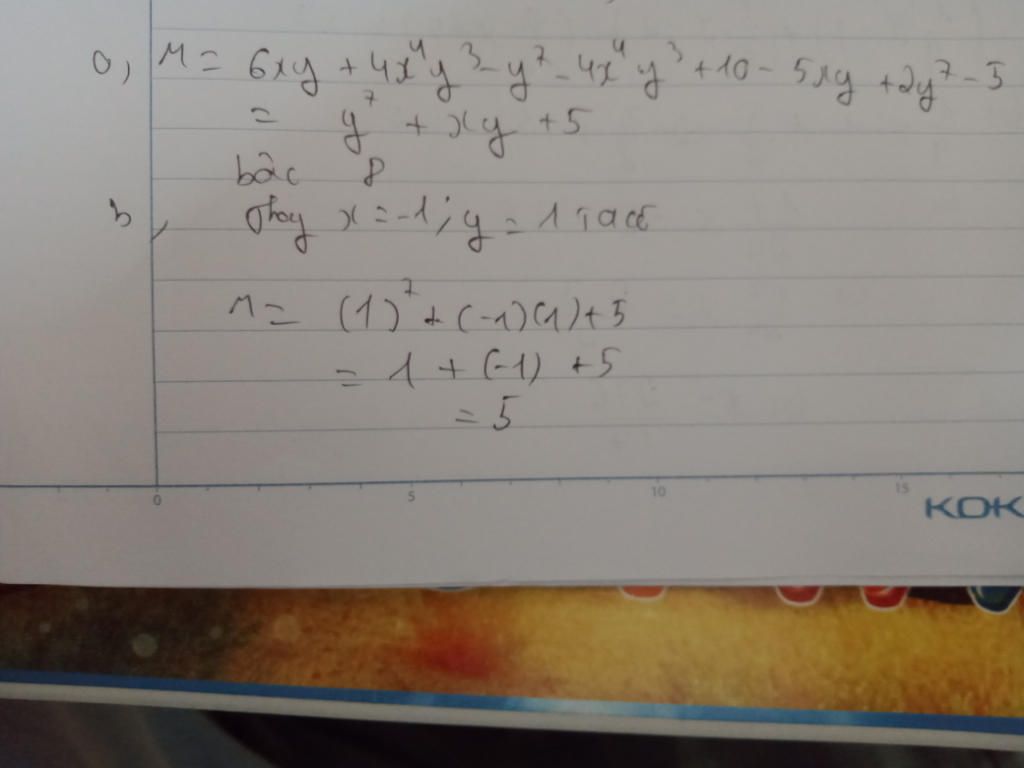 a, M = 6xy + 4x⁴y³ - y⁷ - 4x⁴y³ + 10 - 5xy + 2y⁷ - 5
= y⁷ + xy + 5
bậc 8
b, Thay x = -1; y = 1 ta có
M = (1)⁷ + (-1)(1) + 5
= 1 + (-1) + 5
= 5
0 5 10 15
KOK